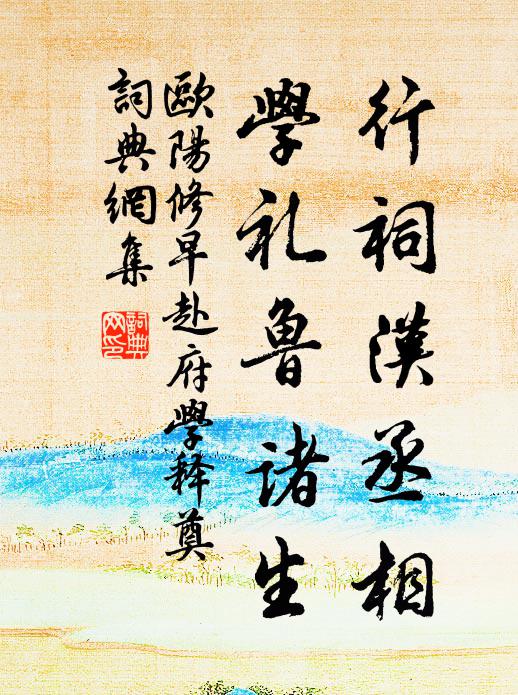 行祠漢丞相
學礼魯诸生
歐陽修早赴府學释奠
詞典網集
詞典网印